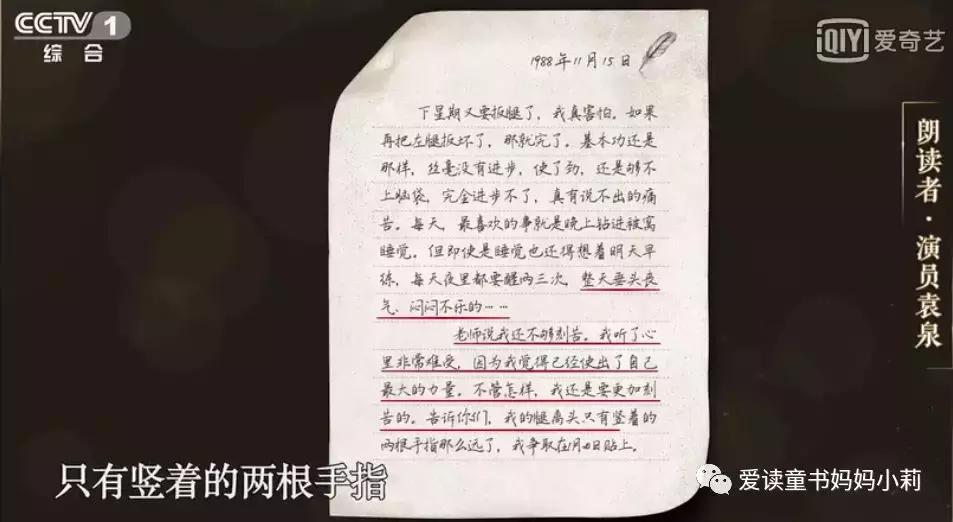 CCTV 1
综合
iQIYI 爱奇艺
1988年11月15日
下星期又要扳腿了，我真害怕。如果
再把左腿扳坏了，那就完了。基本功还是
那样，丝毫没有进步，使了劲，还是够不
上脑袋，完全进步不了，真有说不出的痛
苦。每天，最喜欢的事就是晚上钻进被窝
睡觉。但即使是睡觉也还得想着明天早
练，每天夜里都要醒两三次，整天垂头丧
气、闷闷不乐的……
老师说我还不够刻苦。我听了心
里非常难受，因为我觉得已经使出了自己
最大的力量。不管怎样，我还是要更加刻
苦的。告诉你们，我的腿离头只有竖着的
两根手指那么远了，我争取在1月日贴上。
朗读者·演员袁泉
只有竖着的两根手指
爱读童书妈妈小莉